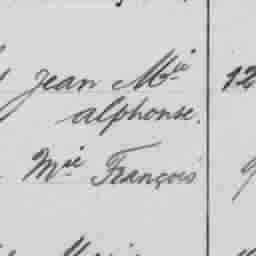 Jean Mie 12
alphonse.
Mie François